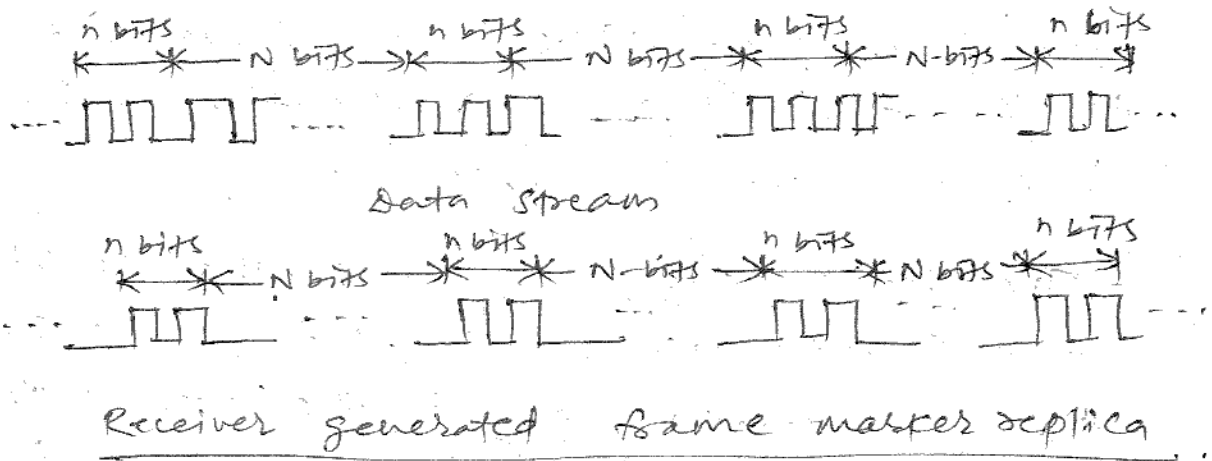 n bits n bits n bits n bits
N bits N bits N-bits
Data stream
n bits n bits n bits n bits
N bits N-bits N bits
Receiver generated frame marker replica